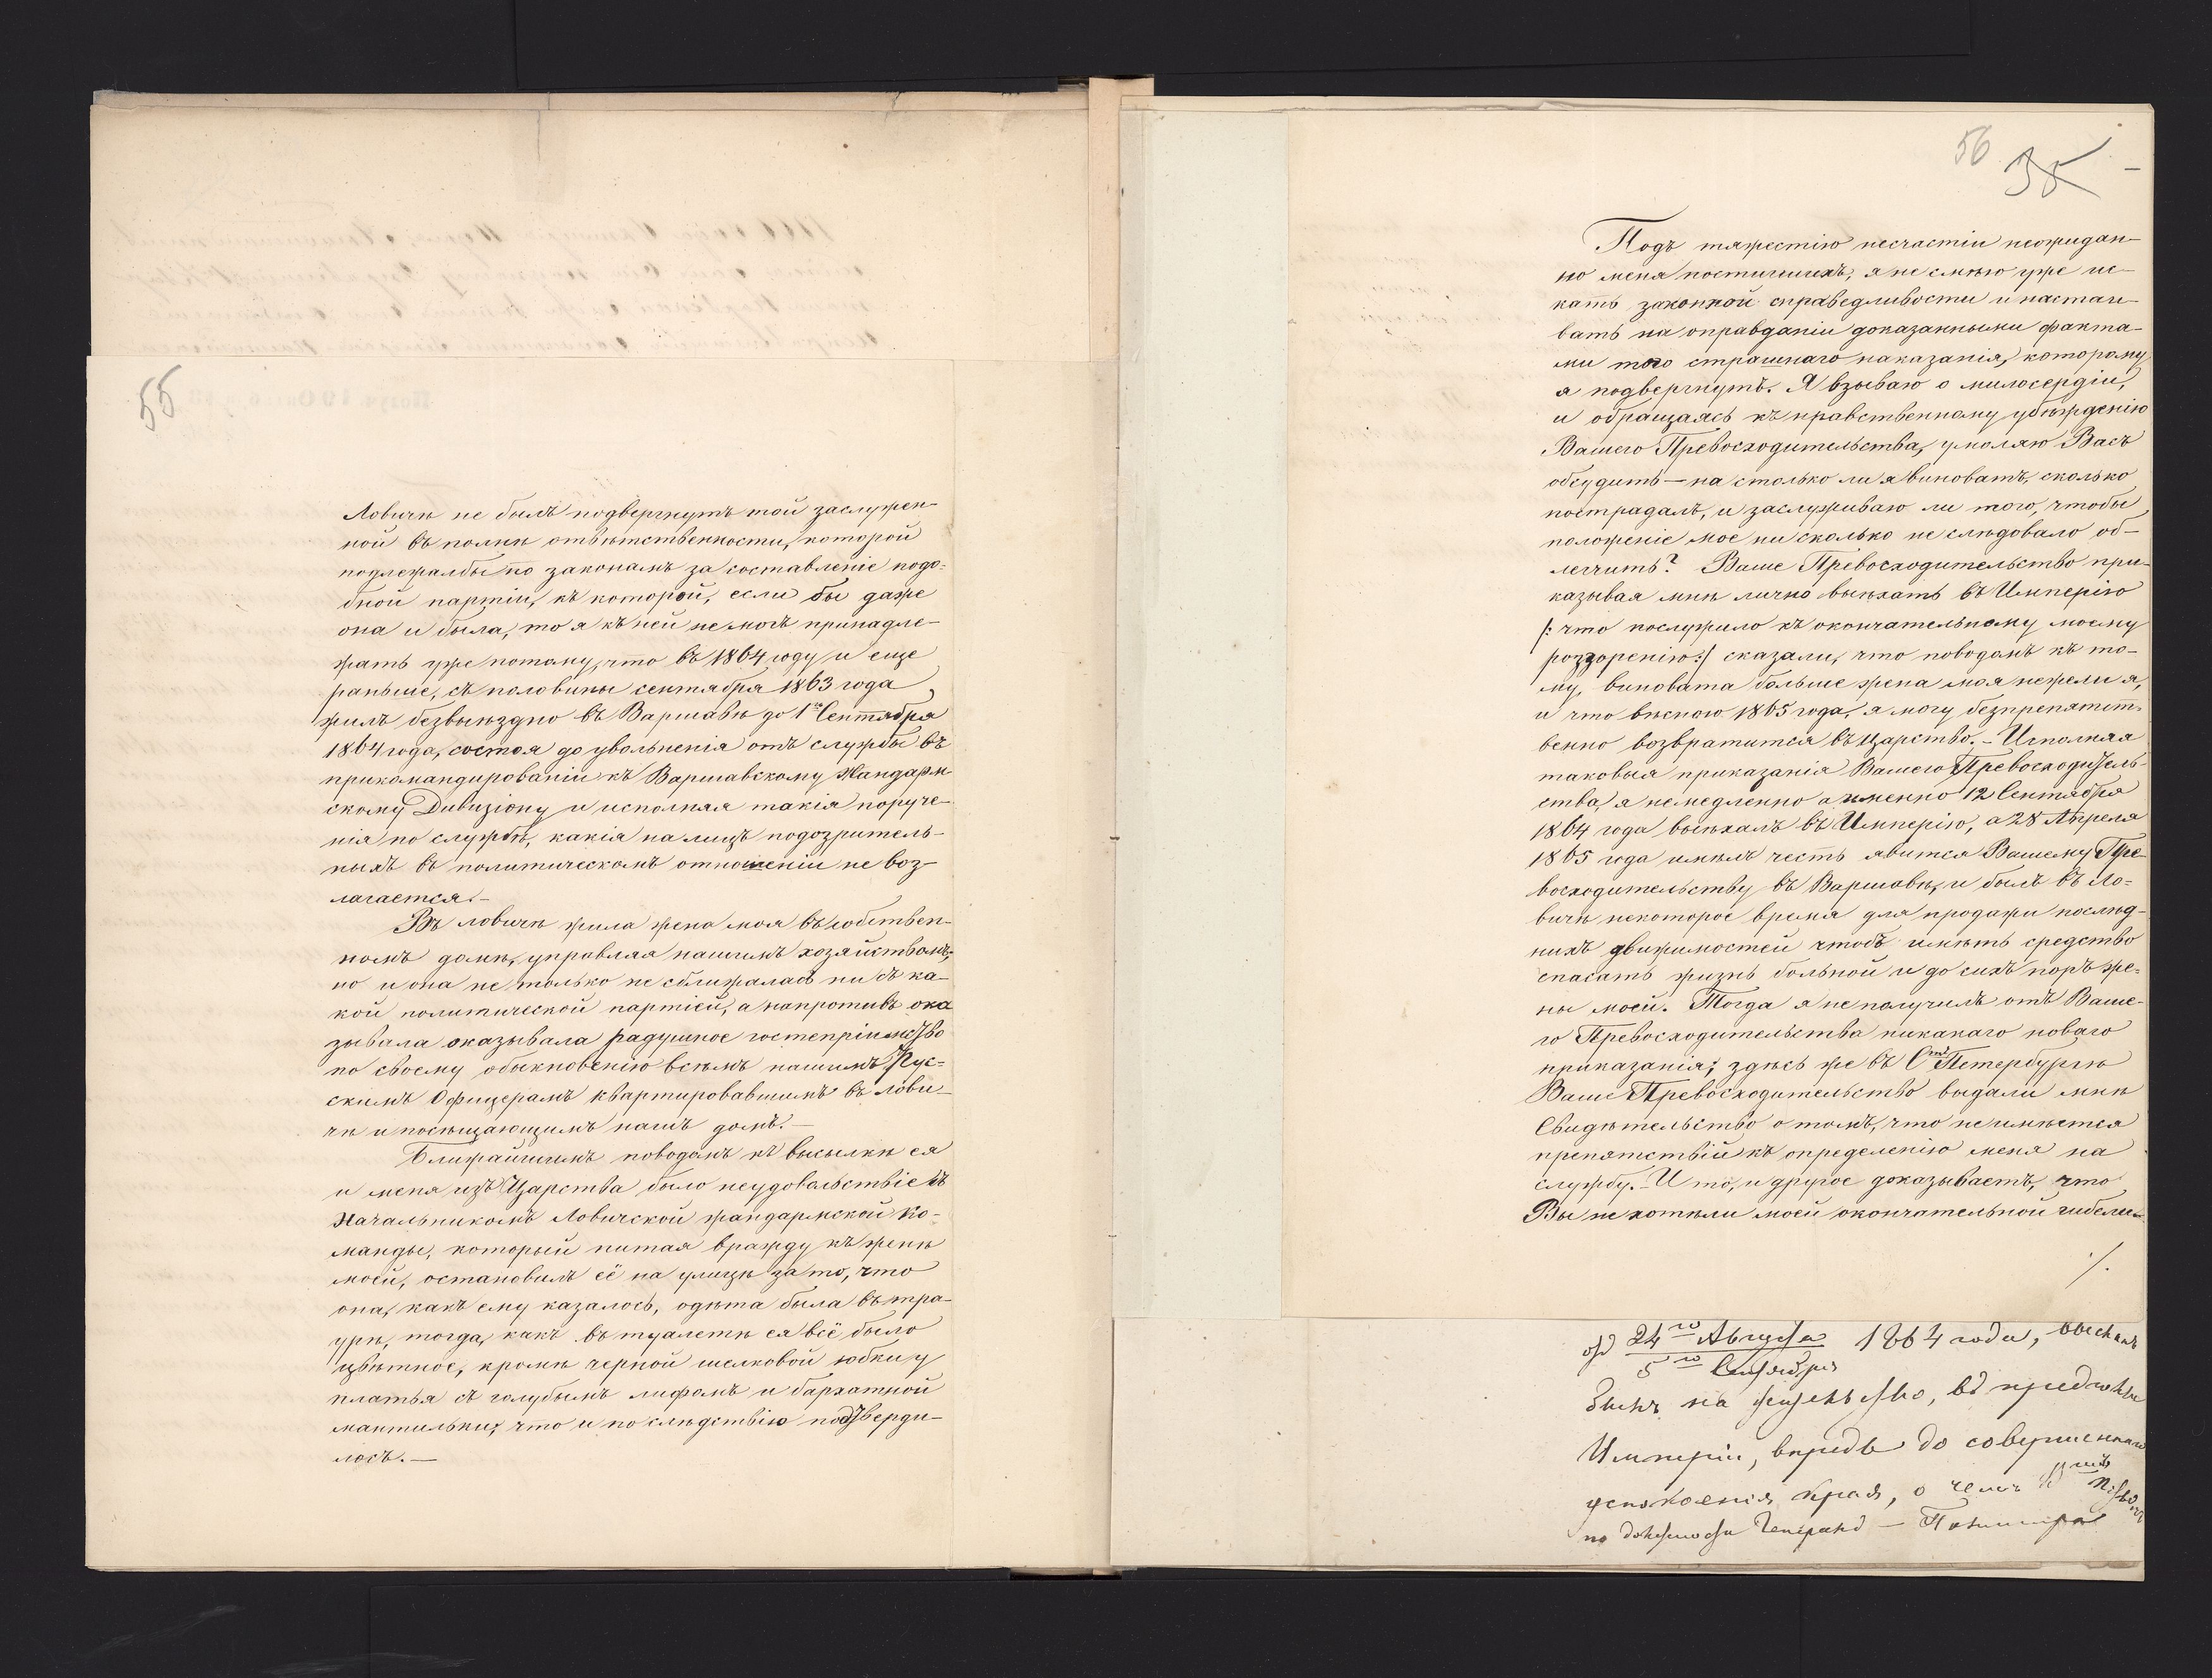 55
Ловичѣ не былъ подвергнутъ той заслужен-
ной въ полнѣ отвѣтственности, которой
подлежалъбы по законамъ за составленіе подо-
бной партіи, къ которой, если бы даже
она и была, то я къ ней не могъ принадле-
жать уже потому, что въ 1864 году и еще
раньше, съ половины сентября 1863 года
жилъ безвыѣздно въ Варшавѣ до 1го Сентября
1864 года, состоя до увольненія отъ службы въ
прикомандированіи къ Варшавскому Жандарм-
скому Дивизіону и исполняя такія поруче-
нія по службѣ, какія на лицъ подозритель-
ныхъ въ политическомъ отношеніи не воз-
лагается.–
Въ Ловичѣ жила жена моя въ собствен-
номъ домѣ, управляя нашимъ хозяйствомъ;
но и она не только не сближалась ни съ ка-
кой политической партіей, а напротивъ ока
зывала оказывала радушное гостепріимство
по своему обыкновенію всѣмъ нашимъ Рус-
скимъ Офицерамъ квартировавшимъ въ Лови-
чѣ и посѣщающимъ нашъ домъ.–
Ближайшимъ поводомъ къ высылкѣ ея
и меня изъ Царства было неудовольствіе съ
Начальникомъ Ловичской жандармской ко-
манды, который питая вражду къ женѣ
моей, остановилъ её на улицѣ за то, что
она, какъ ему казалось, одѣта была въ тра-
урѣ, тогда, какъ въ туалетѣ ея всё было
цвѣтное, кромѣ черной шелковой юбки, у
платья съ голубымъ лифомъ и бархатной
мантильки; что и по слѣдствію подтверди-
лось.–
56
35
Подъ тяжестію несчастіи неожидан-
но меня постигшихъ, я не смѣю уже ис-
кать законной справедливости и настаи-
вать на оправданіи доказанными факта-
ми того страшнаго наказанія, которому
я подвергнутъ. Я взываю о милосердіи,
и обращаясь къ нравственному убѣжденію
Вашего Превосходительства, умоляю Васъ
обсудить – на столько ли я виноватъ, сколько
пострадалъ, и заслуживаю ли того, чтобы
положеніе мое ни сколько не слѣдовало об-
легчить? Ваше Превосходительство при-
казывая мнѣ лично выѣхать въ Имперію
/: что послужило къ окончательному моему
раззоренію :/ сказали, что поводомъ къ то-
му, виновата больше жена моя нежели я,
и что весною 1865 года, я могу безпрепятст-
венно возвратится въ Царство.– Исполняя
таковыя приказанія Вашего Превосходитель-
ства, я немедленно а именно 12 Сентября
1864 года выѣхалъ въ Имперію, а 28 Апреля
1865 года имѣлъ честь явится Вашему Пре-
восходительству въ Варшавѣ, и былъ въ Ло-
вичѣ некоторое время для продажи послѣд-
нихъ движимостей чтобъ имѣть средство
спасать жизнь больной и до сихъ поръ же-
ны моей. Тогда я не получилъ отъ Ваше-
го Превосходительства никакаго новаго
приказанія; здѣсь же въ Стъ Петербургѣ
Ваше Превосходительство выдали мнѣ
Свидѣтельство о томъ, что не имѣется
препятствій къ определенію меня на
службу.– И то, и другое доказываетъ, что
Вы не хотѣли моей окончательной гибели.
./.
отъ 24го Августа 1864 года, высланъ
5го Сентября
былъ на жительство, въ
Имперіи, впредь до совершеннаго
успокоенія края, о чемъ
по должности Генералъ – Полицмейстера